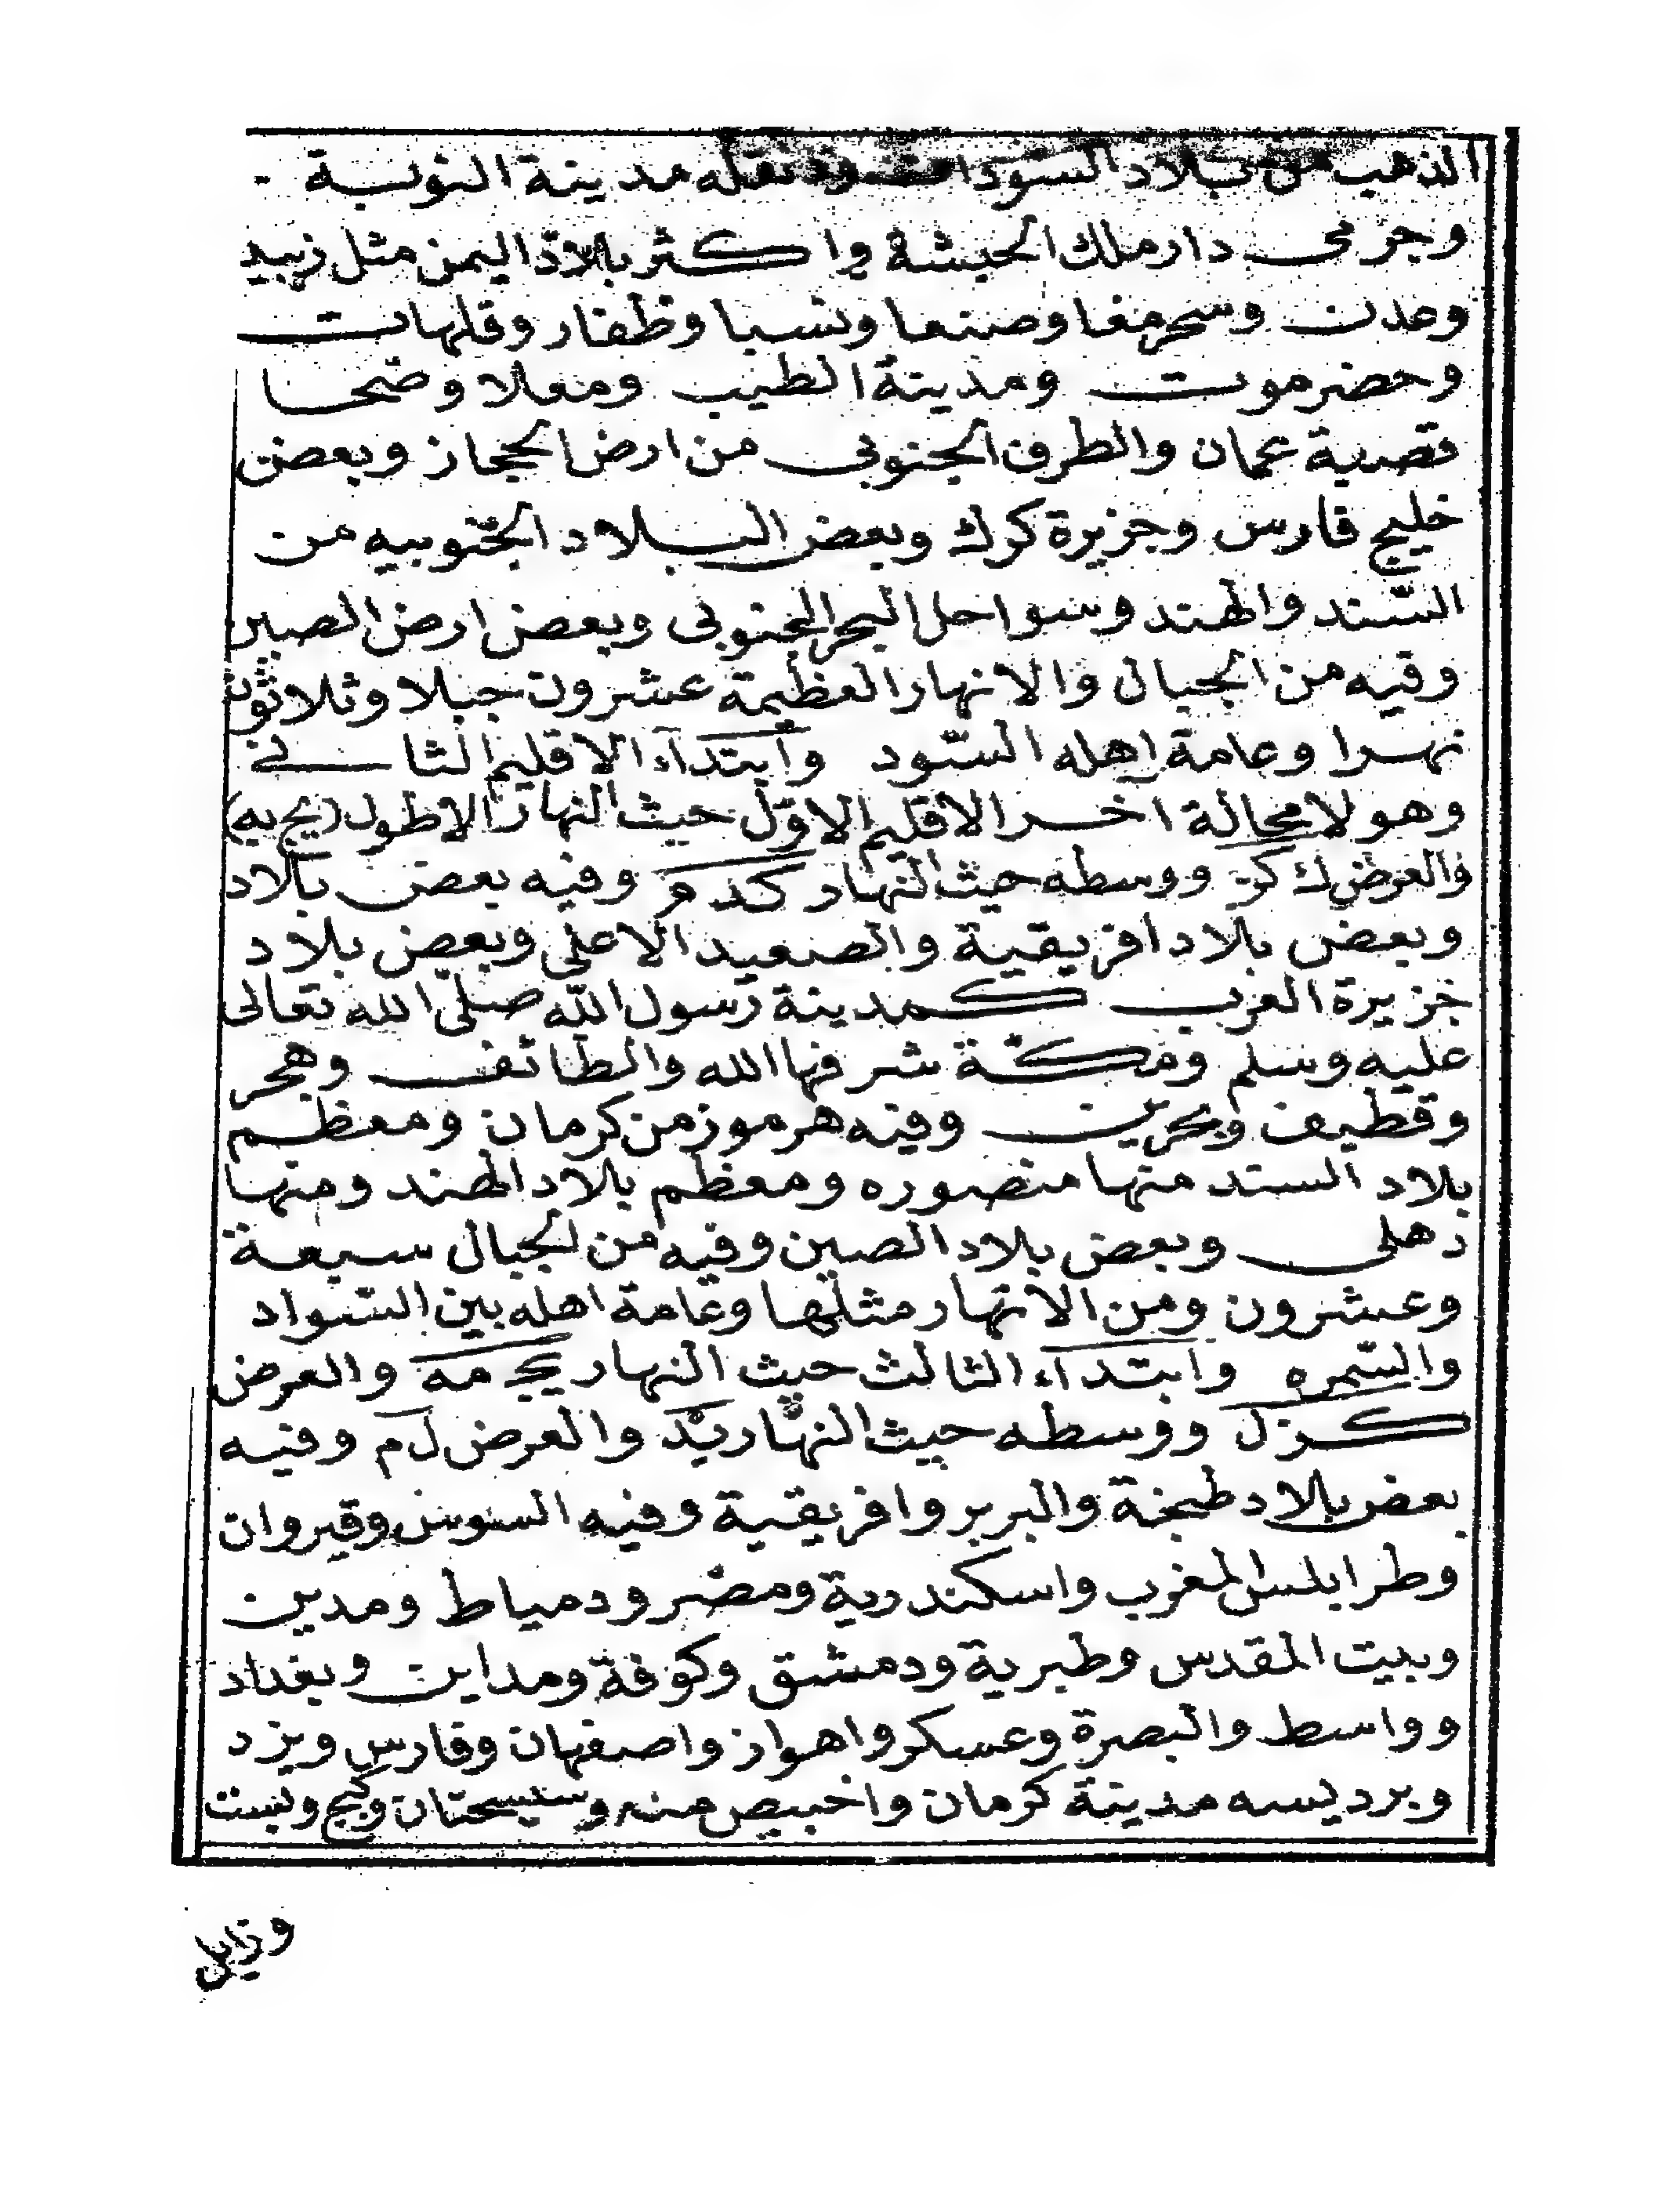 الذهب من بلاد السودان ودنقله مدينة النوبة
وجرمى دار ملك الحبشة واكثر بلاد اليمن مثل زبيد
وعدن وصنعا وسبا وظفار وقلهات
وحضرموت ومدينة الطيب ومعلا وضحا
قصبة عمان والطرف الجنوبى من ارض الحجاز وبعض
خليج فارس وجزيرة كرك وبعض البلاد الجنوبيه من
السند والهند وسواحل البحر الجنوبى وبعض ارض الصين
وفيه من الجبال والانهار العظيمة عشرون جبلا وثلاثون
نهرا وعامة اهله السّود وابتدآء الاقليم الثانى
وهو لا محالة اخر الاقليم الاوّل حيث النهار الاطول (يج يه)
والعرض ك كز ووسطه حيث النهار كدم وفيه بعض بلاد
وبعض بلاد افريقية والصعيد الاعلى وبعض بلاد
جزيرة العرب كمدينة رسول الله صلّى الله تعالى
عليه وسلم ومكّة شرفها الله والطائف وهجر
وقطيف وبحرين وفيه هرموز من كرمان ومعظم
بلاد السند منها منصوره ومعظم بلاد الهند ومنها
دهلى وبعض بلاد الصين وفيه من الجبال سبعة
وعشرون ومن الانهار مثلها وعامة اهله بين السّواد
والسّمره وابتدآء الثالث حيث النهار يج مه والعرض
كزل ووسطه حيث النهار يد والعرض لم وفيه
بعض بلاد طنجة والبربر وافريقية وفيه السوس وقيروان
وطرابلس المغرب واسكندرية ومصر ودمياط ومدين
وبيت المقدس وطبرية ودمشق وكوفة ومداين وبغداد
وواسط والبصرة وعسكر واهواز واصفهان وفارس ويزد
وبرديسه مدينة كرمان واخبيص منه وسيسحتان وكيج وبست
وزابل